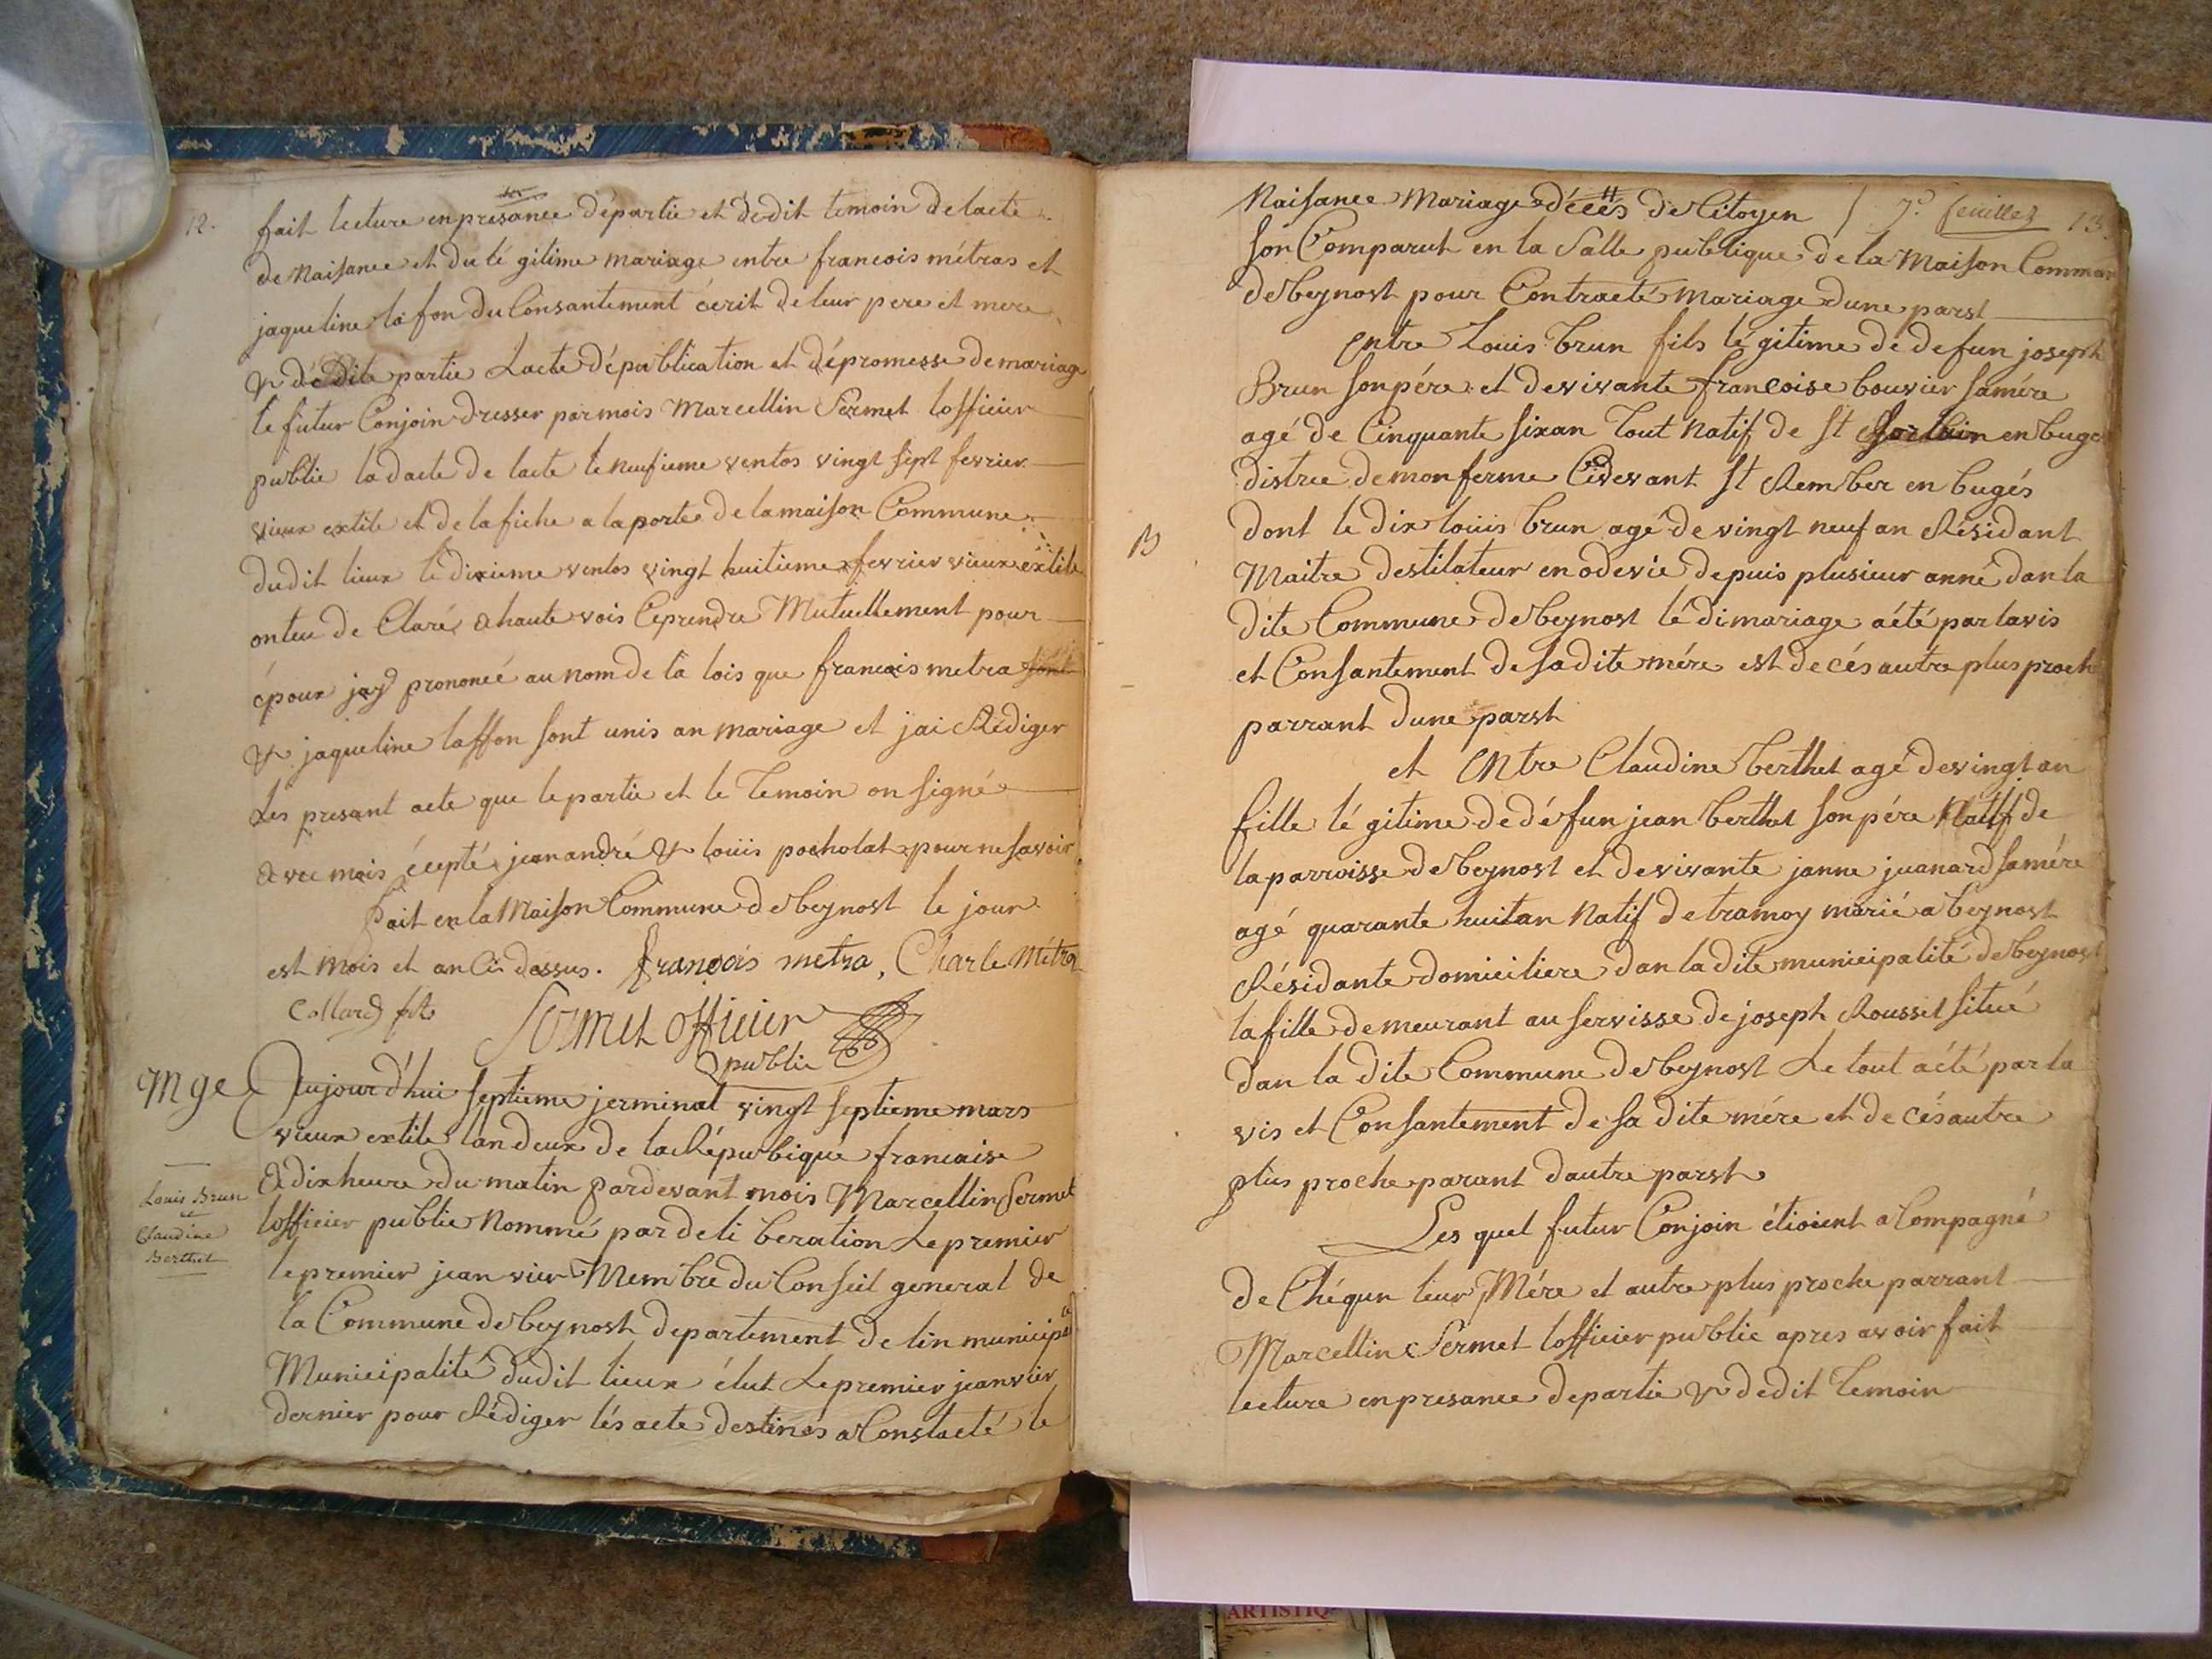 12.
fait lecture en presance départie et dedit temoin de lacte
de Naisance et du lé gitime mariage entre francois métras et
jaqueline lafon du Consantement écrit de leur pere et mere
& dé Dite partie Lacte dépublication et dépromesse de mariage
le futur Conjoin dresser par mois Marcellin Sermet lofficier
public la dacte de lacte le neufieme ventos vingt sept fevrier
vieux extile et de lafiche a la porte de la maison Commune
dudit lieux le dixieme ventos vingt huitieme fevrier vieux extile
onteu de Claré a haute vois Ceprendre Mutuellement pour
époux jay prononcé au nom de la lois que francois metra sont
& jaqueline laffon sont unis an mariage et jai Rédiger
Les presant acte que le partie et le Temoin on signé
avec mois écepté jean andré & louis pocholat pour ne savoir
fait en la Maison Commune de beynost le jour
est mois et an Ci dessus. françois metra, Charle Métra
Collard fils
Sermet officier
public
Mge
Aujourd'hui septieme jerminal vingt septieme mars
vieux extile lan deux de la Répubique francaise
A dix heure du matin pardevant mois Marcellin Sermet
Louis Brun
et
Claudine
Berthet
lofficier public Nommé par deli beration Le premier
le premier jeanvier Membre du Conseil general de
la Commune de beynost departement de lin municipa
Municipalité dudit lieux élut Le premier jeanvier
dernier pour Rédiger lés acte destinés a Constacté le
Naisance Mariage décès de Citoyen / 7e feuillez 13.
son Comparut en la Salle publique de la Maison Commun
de beynost pour Contracté Mariage dune parst
Entre Louis brun fils lé gitime de defun joseph
Brun son pére et de vivante francoise bouvier samére
agé de Cinquante sixan Tout Natif de St Sorlain en buge
distric de monferme Cidevant St Rember en bugés
B
dont le dix louis brun agé de vingt neuf an Résidant
Maitre destilateur en odevie depuis plusieur anné dan la
dite Commune de beynost lé di mariage aété par lavis
et Consantement de sa dite mére est de cés autre plus proch
parrant dune parst
et Entre Claudine berthet agé de vingt an
fille lé gitime de dé fun jean berthet son pére Natif de
la parroisse de beynost et de vivante janne juanard samére
agé quarante huitan Natif de tramoy marié a beynost
Résidante domiciliere dan la dite municipalité de beynost
la fille demeurant au servisse de joseph Rousset situé
dan la dite Commune de beynost Le tout acté par la
vis et Consantement de sa dite mére et de cés autre
plus proche parant dautre parst
Les quel futur Conjoin étioient a Compagné
de Chéqun leur Mére et autre plus proche parrant
Marcellin Sermet lofficier public apres avoir fait
lecture en presance departie & dedit Temoin
ARTISTIQ